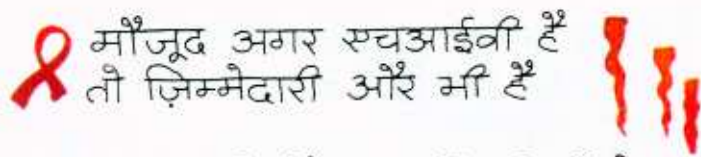 मौजूद अगर एचआईवी है
तो ज़िम्मेदारी और भी है